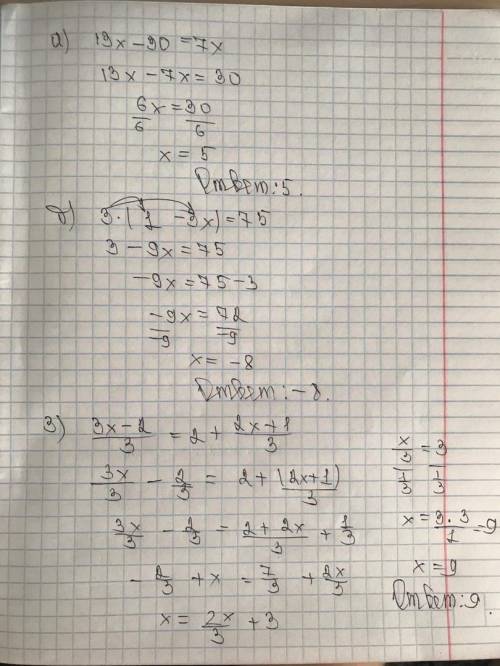 а) 13x − 30 = 7x
13x − 7x = 30
6x/6 = 30/6
x = 5
Ответ: 5.
б) 3·(1 − 3x) = 75
3 − 9x = 75
−9x = 75 − 3
−9x/−9 = 72/−9
x = −8
Ответ: −8.
3) (3x − 2)/3 = 2 + (2x + 1)/3
3x/3 − 2/3 = 2 + (2x+1)/3
3x/3 − 2/3 = (2 + 2x)/3 + 1/3
−2/3 + x = 7/3 + 2x/3
x = 2x/3 + 3
x/3 / 1/3 = 3 / 1/3
x = 3·3/1 = 9
x = 9
Ответ: 9.